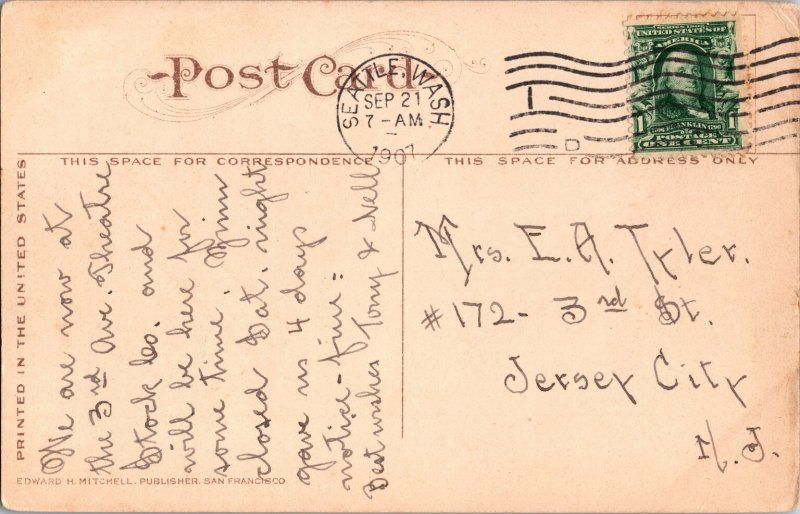 Post Card
SEATTLE, WASH.
SEP 21
7-AM
1907
SERIES 1902
UNITED STATES OF
AMERICA
1706 FRANKLIN 1790
POSTAGE
1 ONE CENT
THIS SPACE FOR CORRESPONDENCE
THIS SPACE FOR ADDRESS ONLY
PRINTED IN THE UNITED STATES
We are now at
the 3rd Ave. Theatre
Stock Co. and
will be here for
some time.
closed Sat. night
gave us 4 days
notice - fine:
Best wishes Tony & Nell
Mrs. E. A. Tyler.
#172- 3rd St.
Jersey City
N. J.
EDWARD H. MITCHELL, PUBLISHER, SAN FRANCISCO